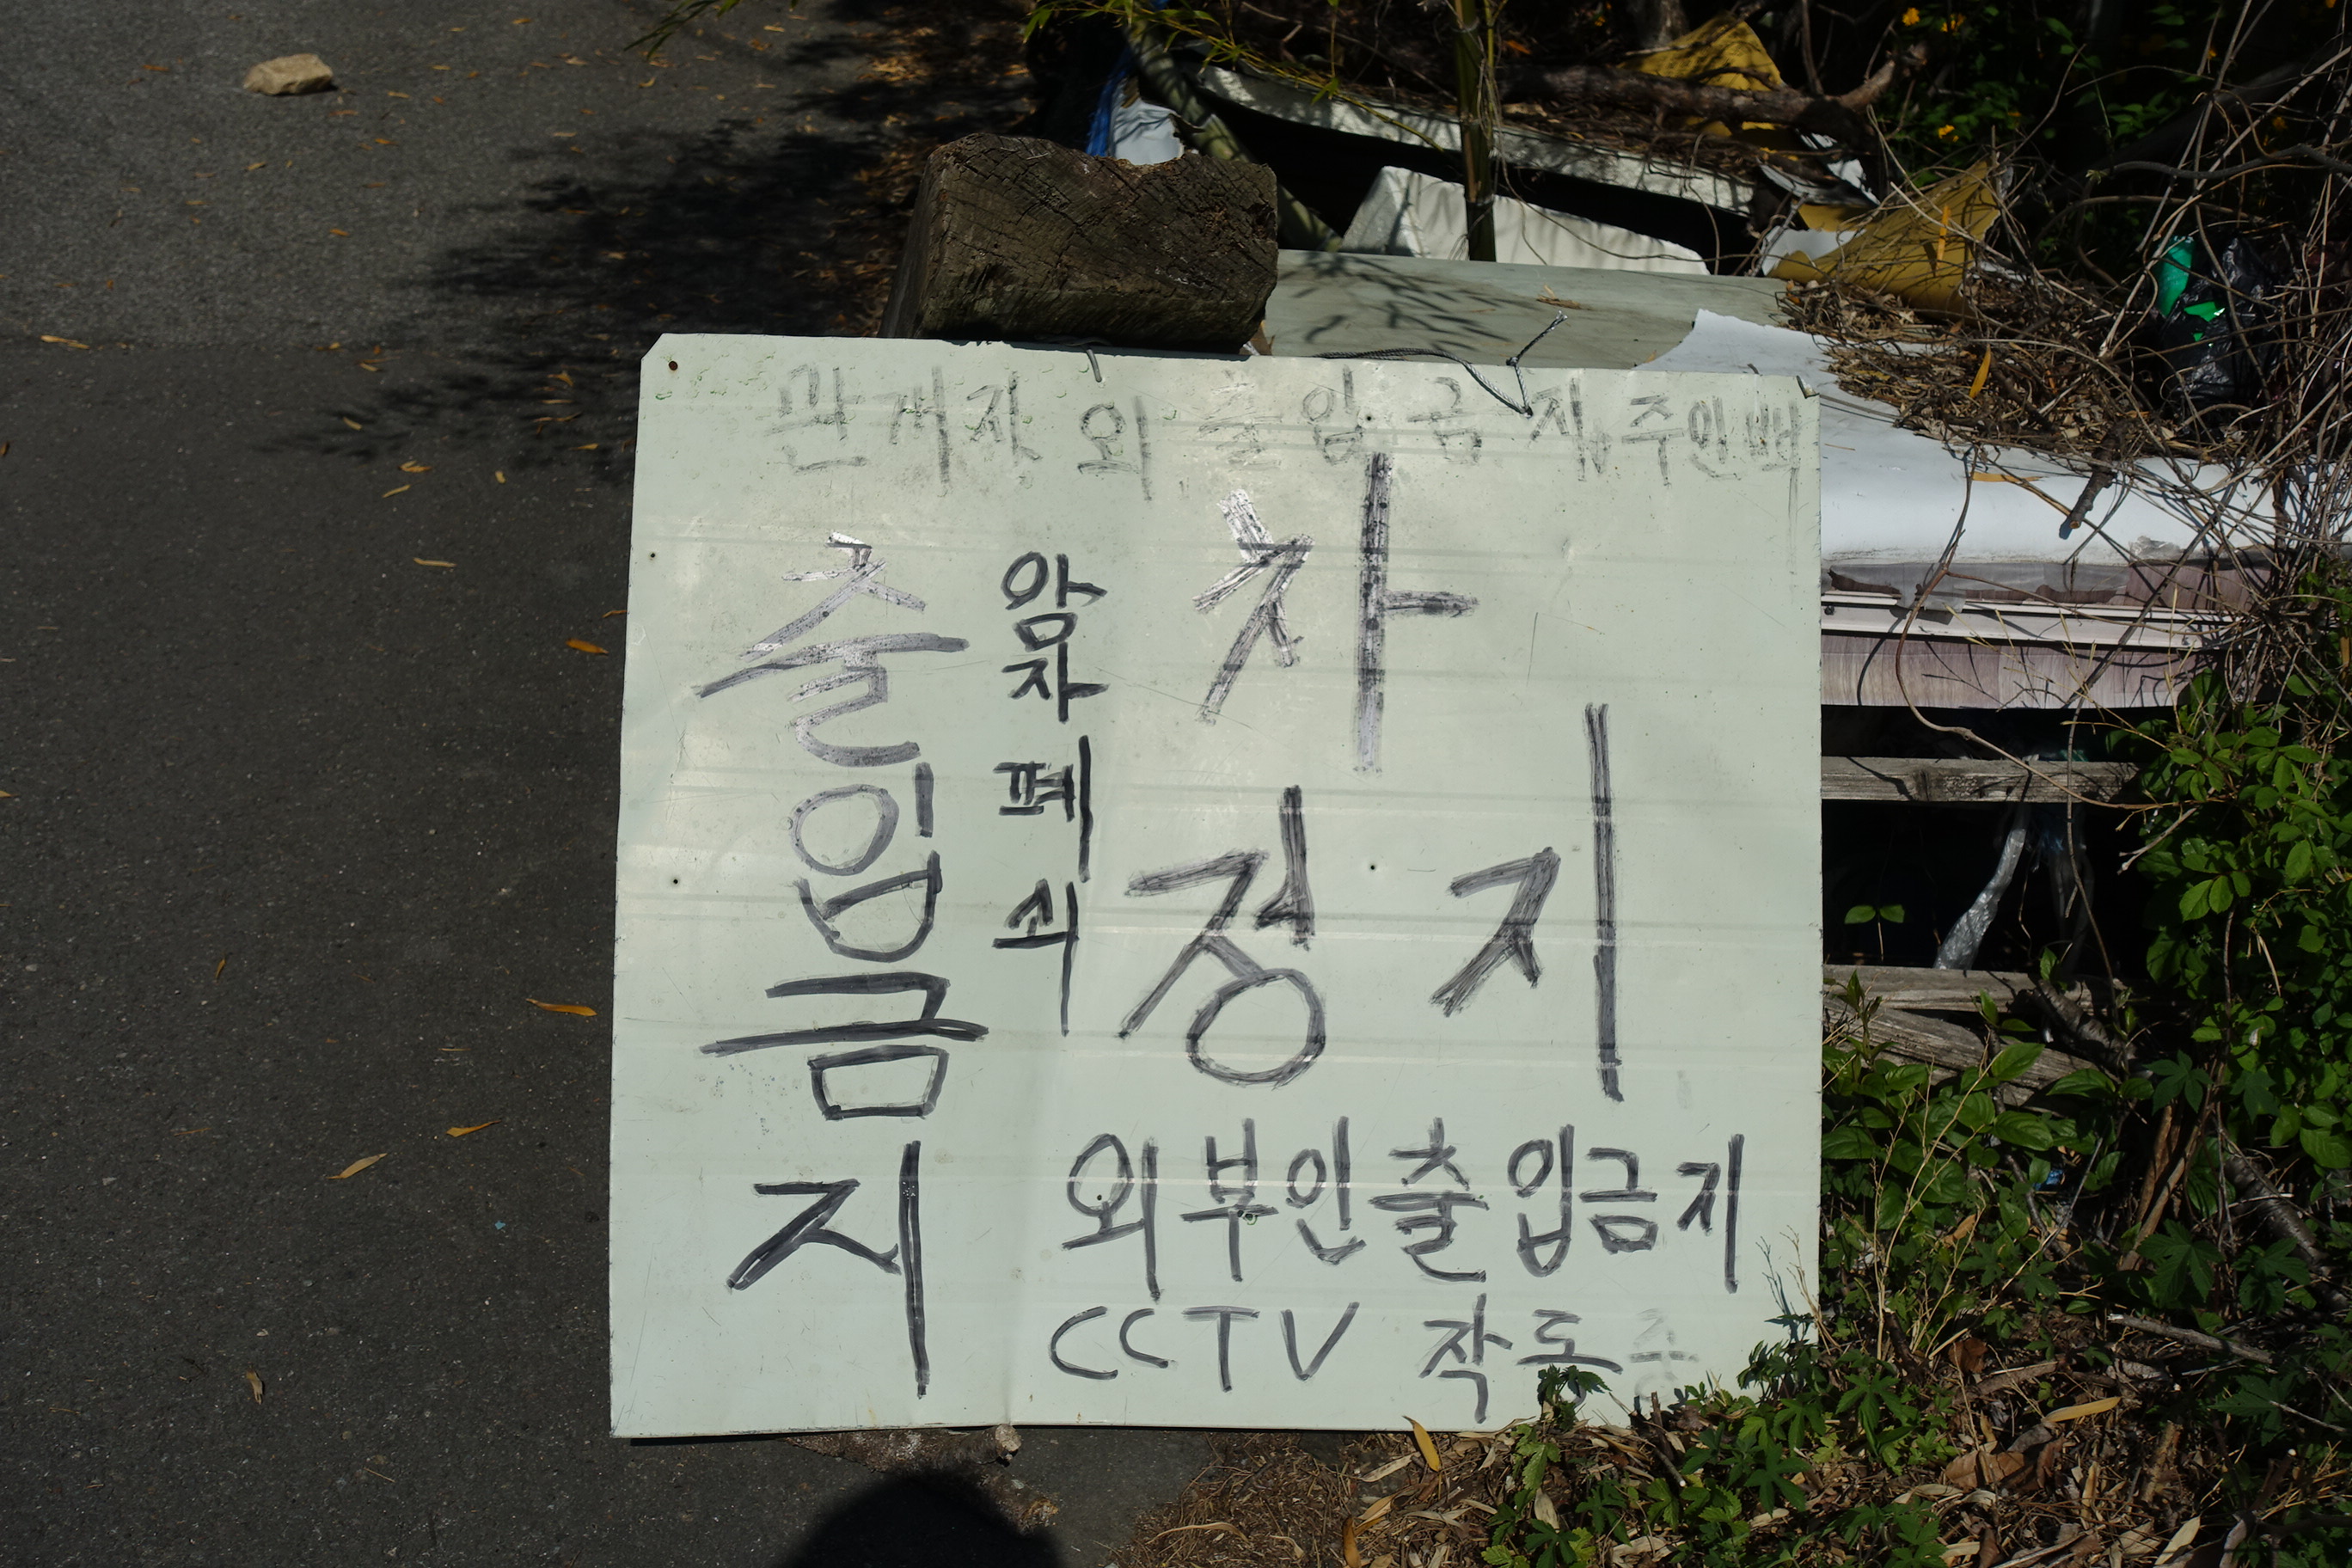 관게자 외 출입 금지 주인백
차
정지
암자 폐쇠
출입금지
외부인출입금지
CCTV 작동중